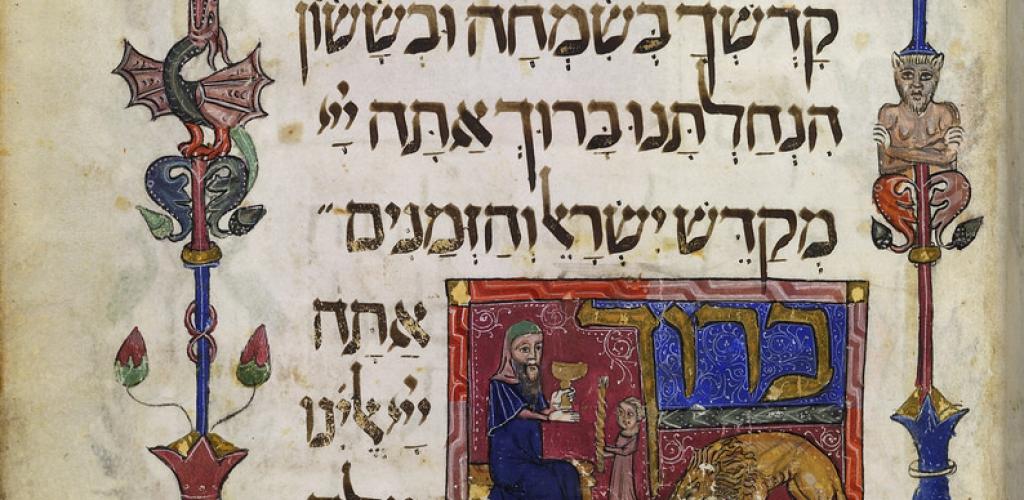 קָדְשְׁךָ בְּשִׂמְחָה וּבְשָׂשׂוֹן
הִנְחַלְתָּנוּ בָּרוּךְ אַתָּה יְיָ
מְקַדֵּשׁ יִשְׂרָאֵל וְהַזְּמַנִּים ״
ברוך
אַתָּה
יְיָ אֱלֹהֵינוּ